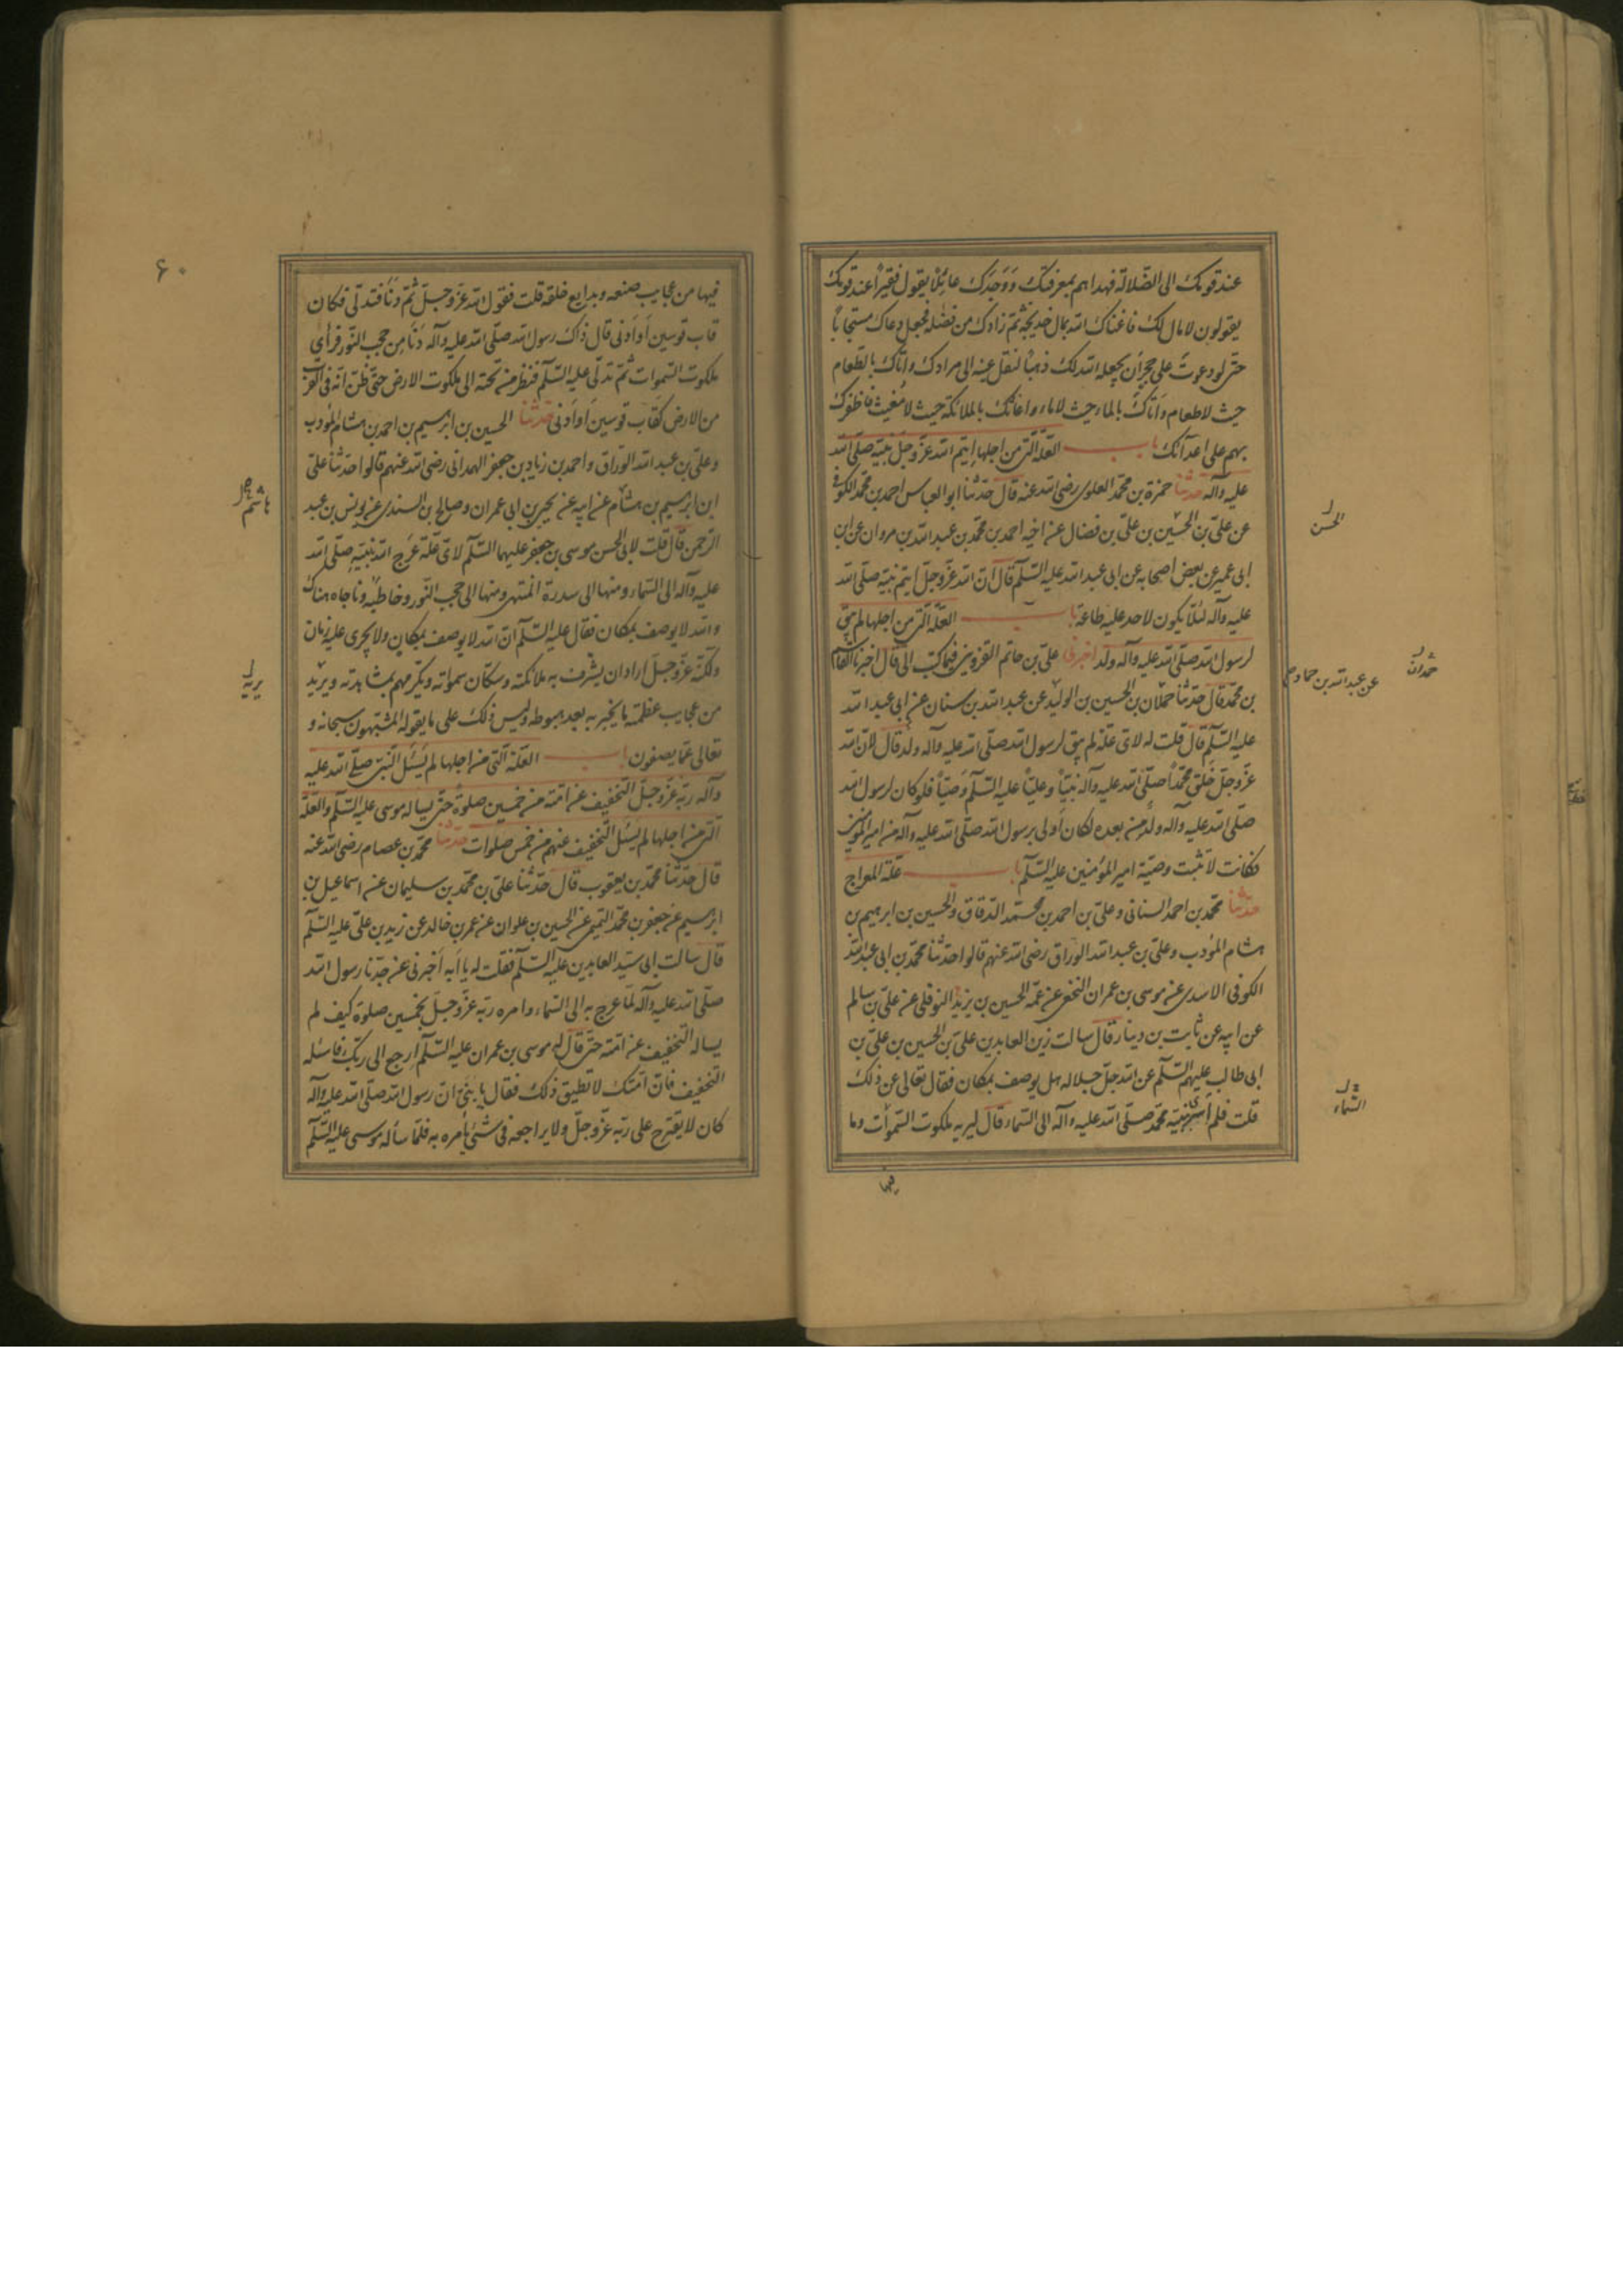 عند قومك الى الضّلالة فهداهم بمعرفتك وَوَجَدَك عائِلًا يقول فقيراً عند قومك
يقولون لا مال لك فاغناك الله بمال خديجة ثمّ زادك من فضله فجعل دعاك مستجاباً
حتى لو دعوتَ على حجرٍ أن يجعله الله لك ذهباً لنقل عينه الى مرادك وأتاك بالطعام
حيث لا طعام وأتاك بالماء حيث لا ماء واغاثك بالملائكة حيث لا مُغيث فاظفرك
بهم على اعدآئك باب العلّة الّتى من اجلها أيتم الله عزّ وجلّ نبيّه صلّى الله
عليه وآله حدثنا حمزة بن محمّد العلوى رضى الله عنه قال حدّثنا ابو العباس احمد بن محمّد الكوفى
عن علىّ بن الحسين بن علىّ بن فضال عن اخيه احمد بن محمّد بن عبد الله بن مروان عن ابن
ابى عمير عن بعض اصحابه عن ابى عبد الله عليه السّلم قال انّ الله عزّ وجلّ ايتم نبيّه صلّى الله
عليه وآله لئلّا يكون لاحد عليه طاعة باب العلّة الّتى من اجلها لم يبق
لرسول الله صلّى الله عليه وآله ولد اخبرنى علىّ بن حاتم القزوينى فيما كتب الىّ قال اخبرنا القاسم
بن محمّد قال حدّثنا حملان بن الحسين بن الوليد عن عبد الله بن سنان عن ابى عبد الله
عليه السّلم قال قلت له لاىّ علّة لم يبق لرسول الله صلّى الله عليه وآله ولد قال لانّ الله
عزّ وجلّ خلق محمّداً صلّى الله عليه وآله نبيّاً وعليّاً عليه السّلم وصيّاً فلو كان لرسول الله
صلّى الله عليه وآله ولد من بعده لكان أولى برسول الله صلّى الله عليه وآله من امير المؤمنين
فكانت لا تثبت وصيّة امير المؤمنين عليه السّلم باب علّة المعراج
حدثنا محمّد بن احمد السنانى وعلىّ بن احمد بن محمّد الدّقاق والحسين بن ابرهيم بن
هشام المؤدب وعلىّ بن عبد الله الورّاق رضى الله عنهم قالوا حدّثنا محمّد بن ابى عبد الله
الكوفى الاسدى عن موسى بن عمران النخعى عن عمّه الحسين بن يزيد النوفلى عن علىّ بن سالم
عن ابيه عن ثابت بن دينار قال سالت زين العابدين علىّ بن الحسين بن علىّ بن
ابى طالب عليهم السّلم عن الله جلّ جلاله هل يوصف بمكان فقال تعالى عن ذلك
قلت فلم أسرى بنبيّه محمّد صلّى الله عليه وآله الى السّماء قال ليريه ملكوت السّموات وما
فيها
الحسن
حمدان
عن عبد الله بن حماد
السّماء
٦٠
فيها من عجايب صنعه وبدايع خلقه قلت فقول الله عزّ وجلّ ثمّ دَنا فتدلّى فكان
قاب قوسين أو أدنى قال ذاك رسول الله صلّى الله عليه وآله دنا من حجب النّور فرأى
ملكوت السّموات ثمّ تدلّى عليه السّلم فنظر من تحته الى ملكوت الارض حتّى ظنّ انّه فى القرب
من الارض كقاب قوسين أو أدنى حدثنا الحسين بن ابرهيم بن احمد بن هشام المؤدب
وعلىّ بن عبد الله الورّاق واحمد بن زياد بن جعفر الهمدانى رضى الله عنهم قالوا حدّثنا علىّ
ابن ابرهيم بن هشام عن ابيه عن يحيى بن ابى عمران وصالح بن السندى عن يونس بن عبد
الرّحمن قال قلت لابى الحسن موسى بن جعفر عليهما السّلم لاىّ علّة عرّج الله نبيّه صلّى الله
عليه وآله الى السّماء ومنها الى سدرة المنتهى ومنها الى حجب النّور وخاطبه وناجاه هناك
والله لا يوصف بمكان فقال عليه السّلم انّ الله لا يوصف بمكان ولا يجرى عليه زمان
ولكنّه عزّ وجلّ اراد ان يشرّف به ملائكته وسكّان سمواته ويكرمهم بمشاهدته ويريد
من عجايب عظمته ما يخبر به بعد هبوطه وليس ذلك على ما يقوله المشبّهون سبحانه و
تعالى عمّا يصفون باب العلّة الّتى من اجلها لم يسئل النّبىّ صلّى الله عليه
وآله ربّه عزّ وجلّ التخفيف عن امّته من خمسين صلوة حتّى يساله موسى عليه السّلم والعلّة
الّتى من اجلها لم يسئل التّخفيف عنهم من خمس صلوات حدثنا محمّد بن عصام رضى الله عنه
قال حدّثنا محمّد بن يعقوب قال حدّثنا علىّ بن محمّد بن سليمان عن اسماعيل بن
ابرهيم عن جعفر بن محمّد التميمى عن الحسين بن علوان عن عمر بن خالد عن زيد بن علىّ عليه السّلم
قال سالت ابى سيّد العابدين عليه السّلم فقلت له يا أبه أخبرنى عن جدّنا رسول الله
صلّى الله عليه وآله لمّا عرج به الى السّماء وامره ربّه عزّ وجلّ بخمسين صلوة كيف لم
يساله التّخفيف عن امّته حتّى قال له موسى بن عمران عليه السّلم ارجع الى ربّك فاسئله
التّخفيف فانّ امّتك لا تطيق ذلك فقال يا بنىّ انّ رسول الله صلّى الله عليه وآله
كان لا يقترح على ربّه عزّ وجلّ ولا يراجعه فى شئ يأمره به فلمّا سأله موسى عليه السّلم
هاشم
يريه